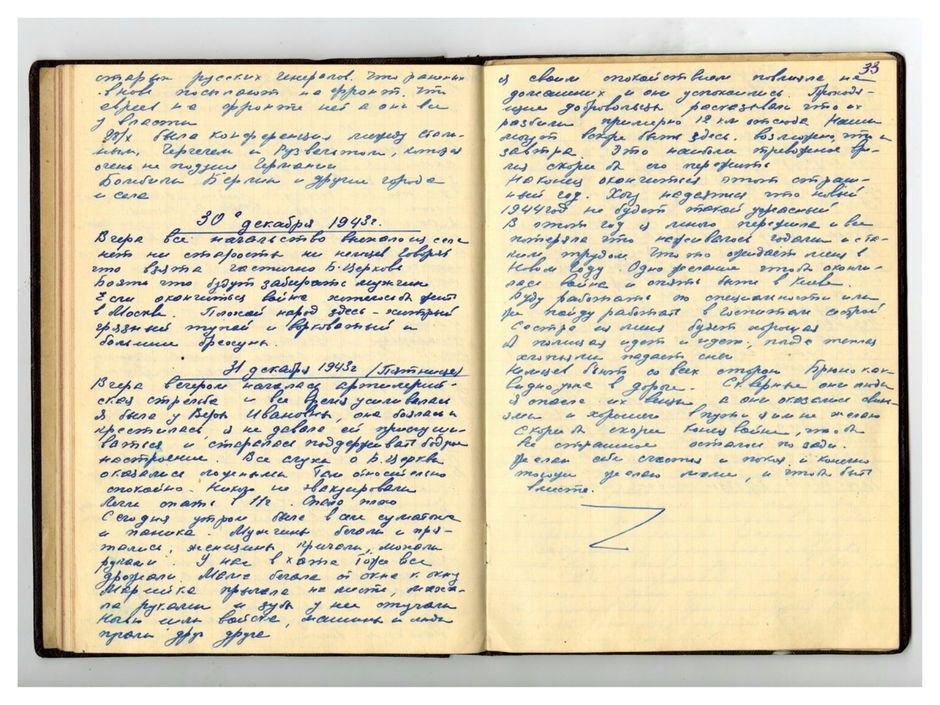 старых русских генералов. Что раненых
вновь посылают на фронт. Что
евреев на фронте нет а они все
у власти
была конференция между Стали-
ным, Черчелем и Рузвельтом, которая
очень не подуше Германии
Бомбили Берлин и другие города
и села
30го декабря 1943 г.
Вчера все начальство выехало из села
нет ни старосты ни немцев Говорят
что взята частично Б. Церковь
Боятся что будут забирать мужчин
Если окончиться война хотелось бы жить
в Москве. Плохой народ здесь - хитрый
грязный тупой и вороватый и
большие брехуны.
31 декабря 1943 г (Пятница)
Вчера вечером началась артилерий-
ская стрельба и все время усиливалась
я была у Веры Ивановны, она боялась и
крестилась, я не давала ей прислуши-
ваться и старалась поддерживать бодрое
настроение. Все слухи о Б. Церкви
оказались ложными Там относительно
спокойно. Никого не эвакуировали
Легли спать в 11 ч. Спала плохо
Сегодня утром была в селе суматоха
и паника. Мужчины бегали и пря-
тались, женщины кричали, махали
руками. У нас в хате тоже все
дрожали. бегала от окна к окну
Марийка прыгала на месте, маха-
ла руками и зубы у нее стучали
шли войска, машины и люди
друг друга
33
я своим спокойствием повлияла на
домашних и они успокоились. Проходя-
щие добровольцы рассказывали что их
разбили примерно 12 км отсюда Наши
могут вскоре быть здесь. возможно, что и
завтра. Это наиболее тревожное вре-
мя скорей б его пережить
Наконец окончиться этот страш-
ный год. Хочу надеяться что новый
1944 год не будет такой ужасный
В этот год я много пережила и все
потеряла что наживалось годами и ста-
рым трудом. Что то ожидает меня в
Новом году. Одно желание чтобы окончи-
лась война и опять быть в Киеве.
Буду работать по специальности или
же пойду работать в Госпиталь сестрой
Сестра из меня будет хорошая
А полиция идет и идет,
хлопьями падает снег
Немцев бьют со всех сторон
уже в дороге. Скверные они люди
я спасла их вещи а они оказались свинь-
ями и хорошего в пути я им не желаю
Скорей б скорей конец войне, чтобы
все страшное осталось позади.
Желаю себе счастья и покоя и конечно
того же желаю маме, и чтобы быть
вместе.